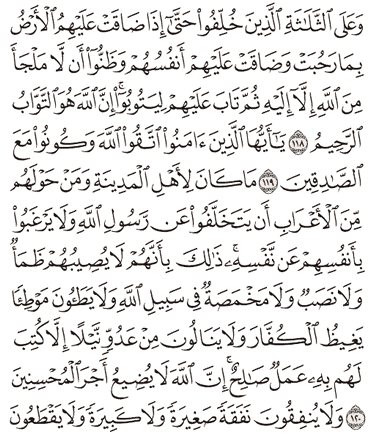 وَعَلَى ٱلثَّلَٰثَةِ ٱلَّذِينَ خُلِّفُوا۟ حَتَّىٰٓ إِذَا ضَاقَتْ عَلَيْهِمُ ٱلْأَرْضُ
بِمَا رَحُبَتْ وَضَاقَتْ عَلَيْهِمْ أَنفُسُهُمْ وَظَنُّوٓا۟ أَن لَّا مَلْجَأَ
مِنَ ٱللَّهِ إِلَّآ إِلَيْهِ ثُمَّ تَابَ عَلَيْهِمْ لِيَتُوبُوٓا۟ ۚ إِنَّ ٱللَّهَ هُوَ ٱلتَّوَّابُ
ٱلرَّحِيمُ ١١٨ يَٰٓأَيُّهَا ٱلَّذِينَ ءَامَنُوا۟ ٱتَّقُوا۟ ٱللَّهَ وَكُونُوا۟ مَعَ
ٱلصَّٰدِقِينَ ١١٩ مَا كَانَ لِأَهْلِ ٱلْمَدِينَةِ وَمَنْ حَوْلَهُم
مِّنَ ٱلْأَعْرَابِ أَن يَتَخَلَّفُوا۟ عَن رَّسُولِ ٱللَّهِ وَلَا يَرْغَبُوا۟
بِأَنفُسِهِمْ عَن نَّفْسِهِۦ ۚ ذَٰلِكَ بِأَنَّهُمْ لَا يُصِيبُهُمْ ظَمَأٌ
وَلَا نَصَبٌ وَلَا مَخْمَصَةٌ فِى سَبِيلِ ٱللَّهِ وَلَا يَطَـُٔونَ مَوْطِئًا
يَغِيظُ ٱلْكُفَّارَ وَلَا يَنَالُونَ مِنْ عَدُوٍّ نَّيْلًا إِلَّا كُتِبَ
لَهُم بِهِۦ عَمَلٌ صَٰلِحٌ ۚ إِنَّ ٱللَّهَ لَا يُضِيعُ أَجْرَ ٱلْمُحْسِنِينَ
١٢٠ وَلَا يُنفِقُونَ نَفَقَةً صَغِيرَةً وَلَا كَبِيرَةً وَلَا يَقْطَعُونَ